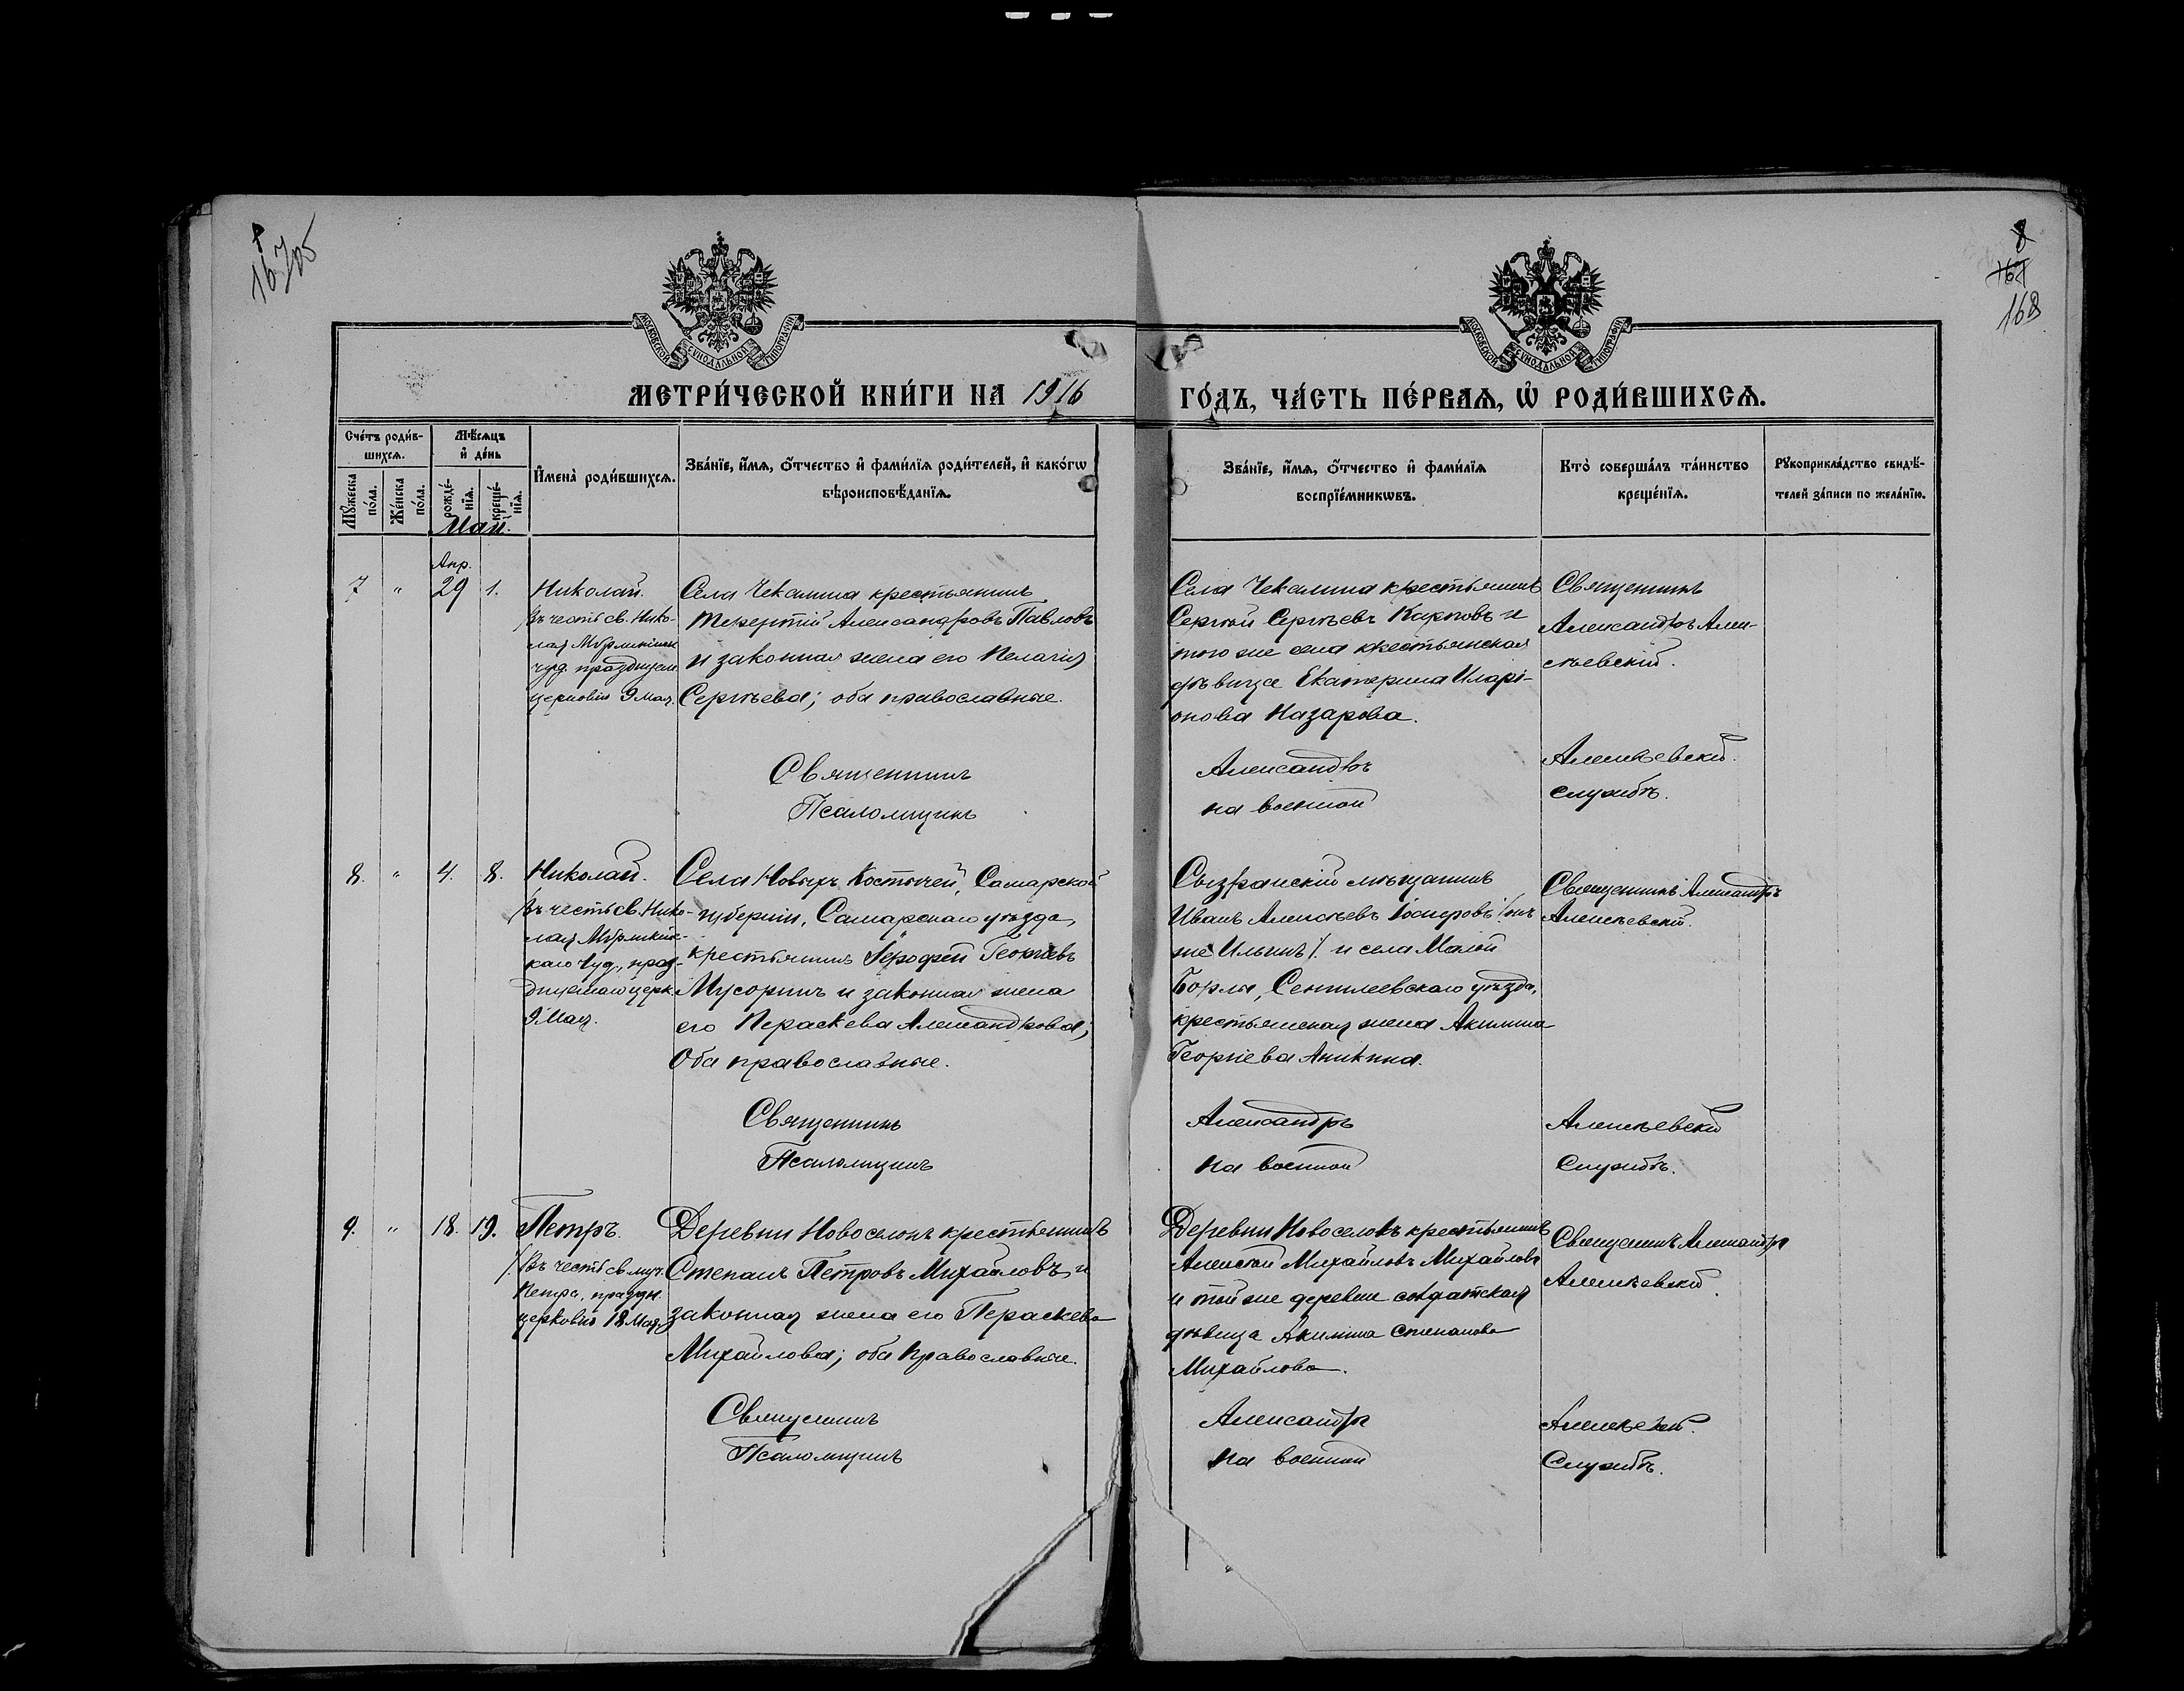 16705
8
167
168
МОСКОВСКОЙ СѴНОДАЛЬНОЙ ТИПОГРАФІИ
МОСКОВСКОЙ СѴНОДАЛЬНОЙ ТИПОГРАФІИ
МЕТРИ́ЧЕСКОЙ КНИ́ГИ НА 1916 ГО́ДЪ, ЧА́СТЬ ПЕ́РВАѦ, Ѡ҆ РОДИ́ВШИХСѦ.
Сче́тъ роди́в-
шихсѧ.
Мꙋ́жеска по́ла.
Же́нска по́ла.
Мѣ́сѧцъ
и҆ де́нь
рожде́-
нїѧ.
креще́-
нїѧ.
Май.
И҆мена̀ роди́вшихсѧ.
Зва́нїе, и҆́мѧ, ѻ҆́тчество и҆ фами́лїѧ роди́телей, и҆ како́гѡ
вѣроисповѣ́данїѧ.
Зва́нїе, и҆́мѧ, ѻ҆́тчество и҆ фами́лїѧ
воспрїе́мникѡвъ.
Кто̀ соверша́лъ та́инство
креще́нїѧ.
Рꙋкоприкла́дство свидѣ́-
телей за́писи по жела́нїю.
Апр.
7 " 29 1.
Николай.
Въ честь св. Нико-
лая Мѵрликійск
чуд. празднуем
церковію 9 Мая.
Села Чекалина крестьянинъ
Терентій Александровъ Павловъ
и законная жена его Пелагія
Сергѣева; оба православные.
Села Чекалина крестьянинъ
Сергѣй Сергѣевъ Карповъ и
того же села крестьянская
дѣвица Екатерина Иларі-
онова Назарова.
Священникъ
Александръ Алек-
сѣевскій.
Священникъ Александръ Алексѣевскій.
Псаломщикъ на военной службѣ.
8. " 4. 8.
Николай.
Въ честь св. Нико-
лая Мѵрликійс-
каго Чуд., праз-
днуемаго церк.
9 Мая.
Села Новыхъ Костычей, Самарской
губерніи, Самарскаго уѣзда,
крестьянинъ Іерофей Георгіевъ
Мусоринъ и законная жена
его Параскева Александрова;
Оба православные.
Сызранскій мѣщанинъ
Иванъ Алексѣевъ онъ
же Ильинъ/ и села Малой
Борлы, Сенгилеевскаго уѣзда,
крестьянская жена Акилина
Георгіева Аникина.
Священникъ Александръ
Алексѣевскій.
Священникъ Александръ Алексѣевскій
Псаломщикъ на военной службѣ.
9. " 18. 19.
Петръ.
/Въ честь св. муч.
Петра, праздн.
церковію 18 Мая/
Деревни Новоселокъ крестьянинъ
Степанъ Петровъ Михайловъ и
законная жена его Параскева
Михайлова; оба православные.
Деревни Новоселокъ крестьянинъ
Алексѣй Михайловъ Михайловъ
и той же деревни солдатская
дѣвица Акилина Степанова
Михайлова.
Священникъ Александръ
Алексѣевскій.
Священникъ Александръ Алексѣевскій.
Псаломщикъ на военной Службѣ.